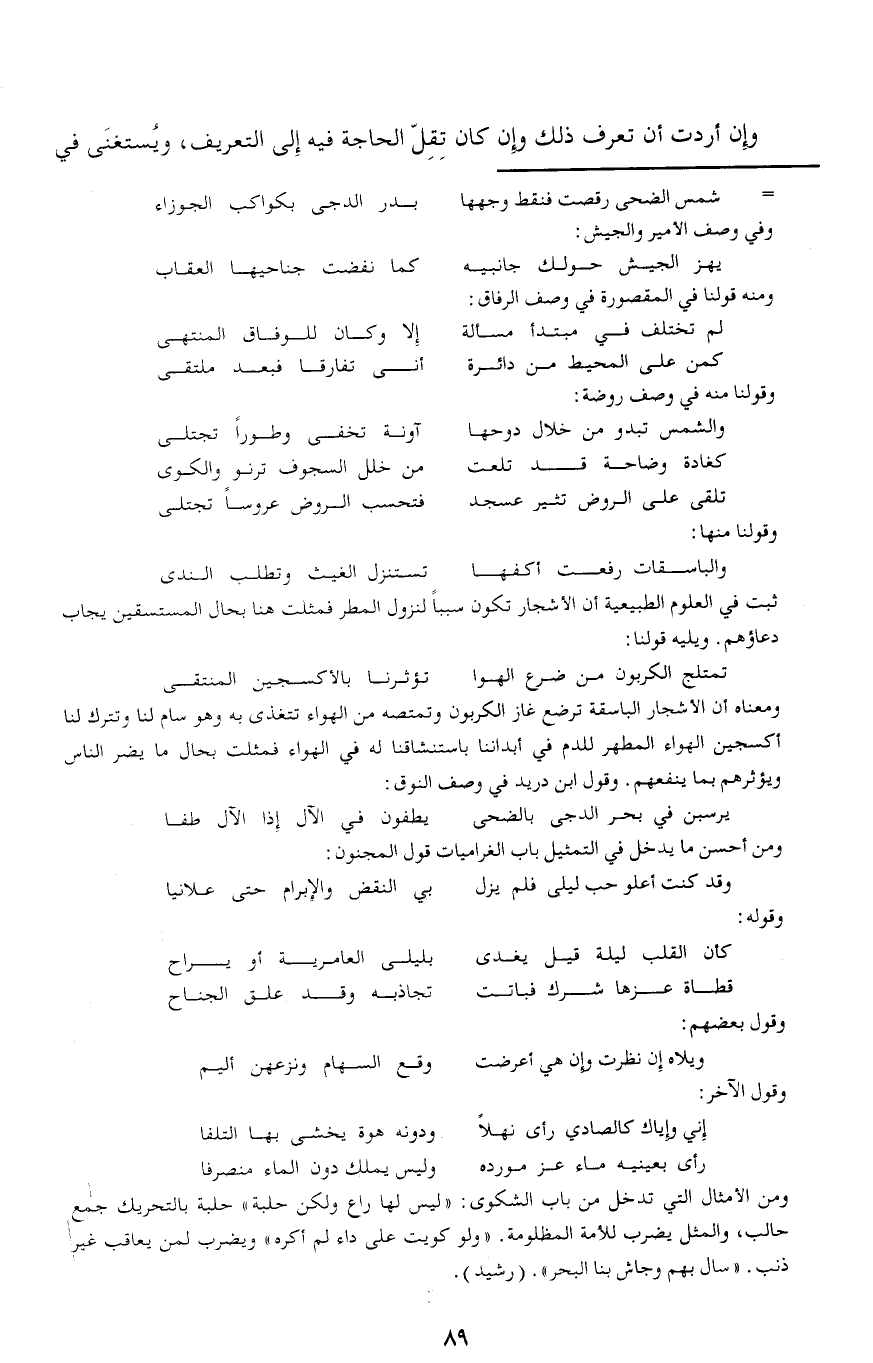 وإن أردت أن تعرف ذلك وإن كان تقِلّ الحاجة فيه إلى التعريف، ويُستغنَى في
= شمس الضحى رقصت فنقط وجهها بدر الدجى بكواكب الجوزاء
وفي وصف الأمير والجيش:
يهز الجيش حولك جانبيه كما نفضت جناحيها العقاب
ومنه قولنا في المقصورة في وصف الرفاق:
لم تختلف في مبتدأ مسألة إلا وكان للوفاق المنتهى
كمن على المحيط من دائرة أنى تفارقا فبعد ملتقى
وقولنا منه في وصف روضة:
والشمس تبدو من خلال دوحها آونة تخفى وطوراً تجتلى
كغادة وضاحة قد تلعت من خلل السجوف ترنو والكوى
تلقى على الروض تثير عسجد فتحسب الروض عروساً تجتلى
وقولنا منها:
والباسقات رفعت أكفها تستنزل الغيث وتطلب الندى
ثبت في العلوم الطبيعية أن الأشجار تكون سبباً لنزول المطر فمثلت هنا بحال المستسقين يجاب
دعاؤهم. ويليه قولنا:
تمتلج الكربون من ضرع الهوا تؤثرنا بالأكسجين المنتقى
ومعناه أن الأشجار الباسقة ترضع غاز الكربون وتمتصه من الهواء تتغذى به وهو سام لنا وتترك لنا
أكسجين الهواء المطهر للدم في أبداننا باستنشاقنا له في الهواء فمثلت بحال ما يضر الناس
ويؤثرهم بما ينفعهم. وقول ابن دريد في وصف النوق:
يرسبن في بحر الدجى بالضحى يطفون في الآل إذا الآل طفا
ومن أحسن ما يدخل في التمثيل باب الغراميات قول المجنون:
وقد كنت أعلو حب ليلى فلم يزل بي النقض والإبرام حتى علانيا
وقوله:
كأن القلب ليلة قيل يغدى بليلى العامرية أو يراح
قطاة عزها شرك فباتت تجاذبه وقد علق الجناح
وقول بعضهم:
ويلاه إن نظرت وإن هي أعرضت وقع السهام ونزعهن أليم
وقول الآخر:
إني وإياك كالصادي رأى نهلاً ودونه هوة يخشى بها التلفا
رأى بعينيه ماء عز مورده وليس يملك دون الماء منصرفا
ومن الأمثال التي تدخل من باب الشكوى: «ليس لها راع ولكن حلبة» حلبة بالتحريك جمع
حالب، والمثل يضرب للأمة المظلومة. «ولو كويت على داء لم أكره» ويضرب لمن يعاقب غير
ذنب. «سال بهم وجاش بنا البحر». (رشيد).
٨٩